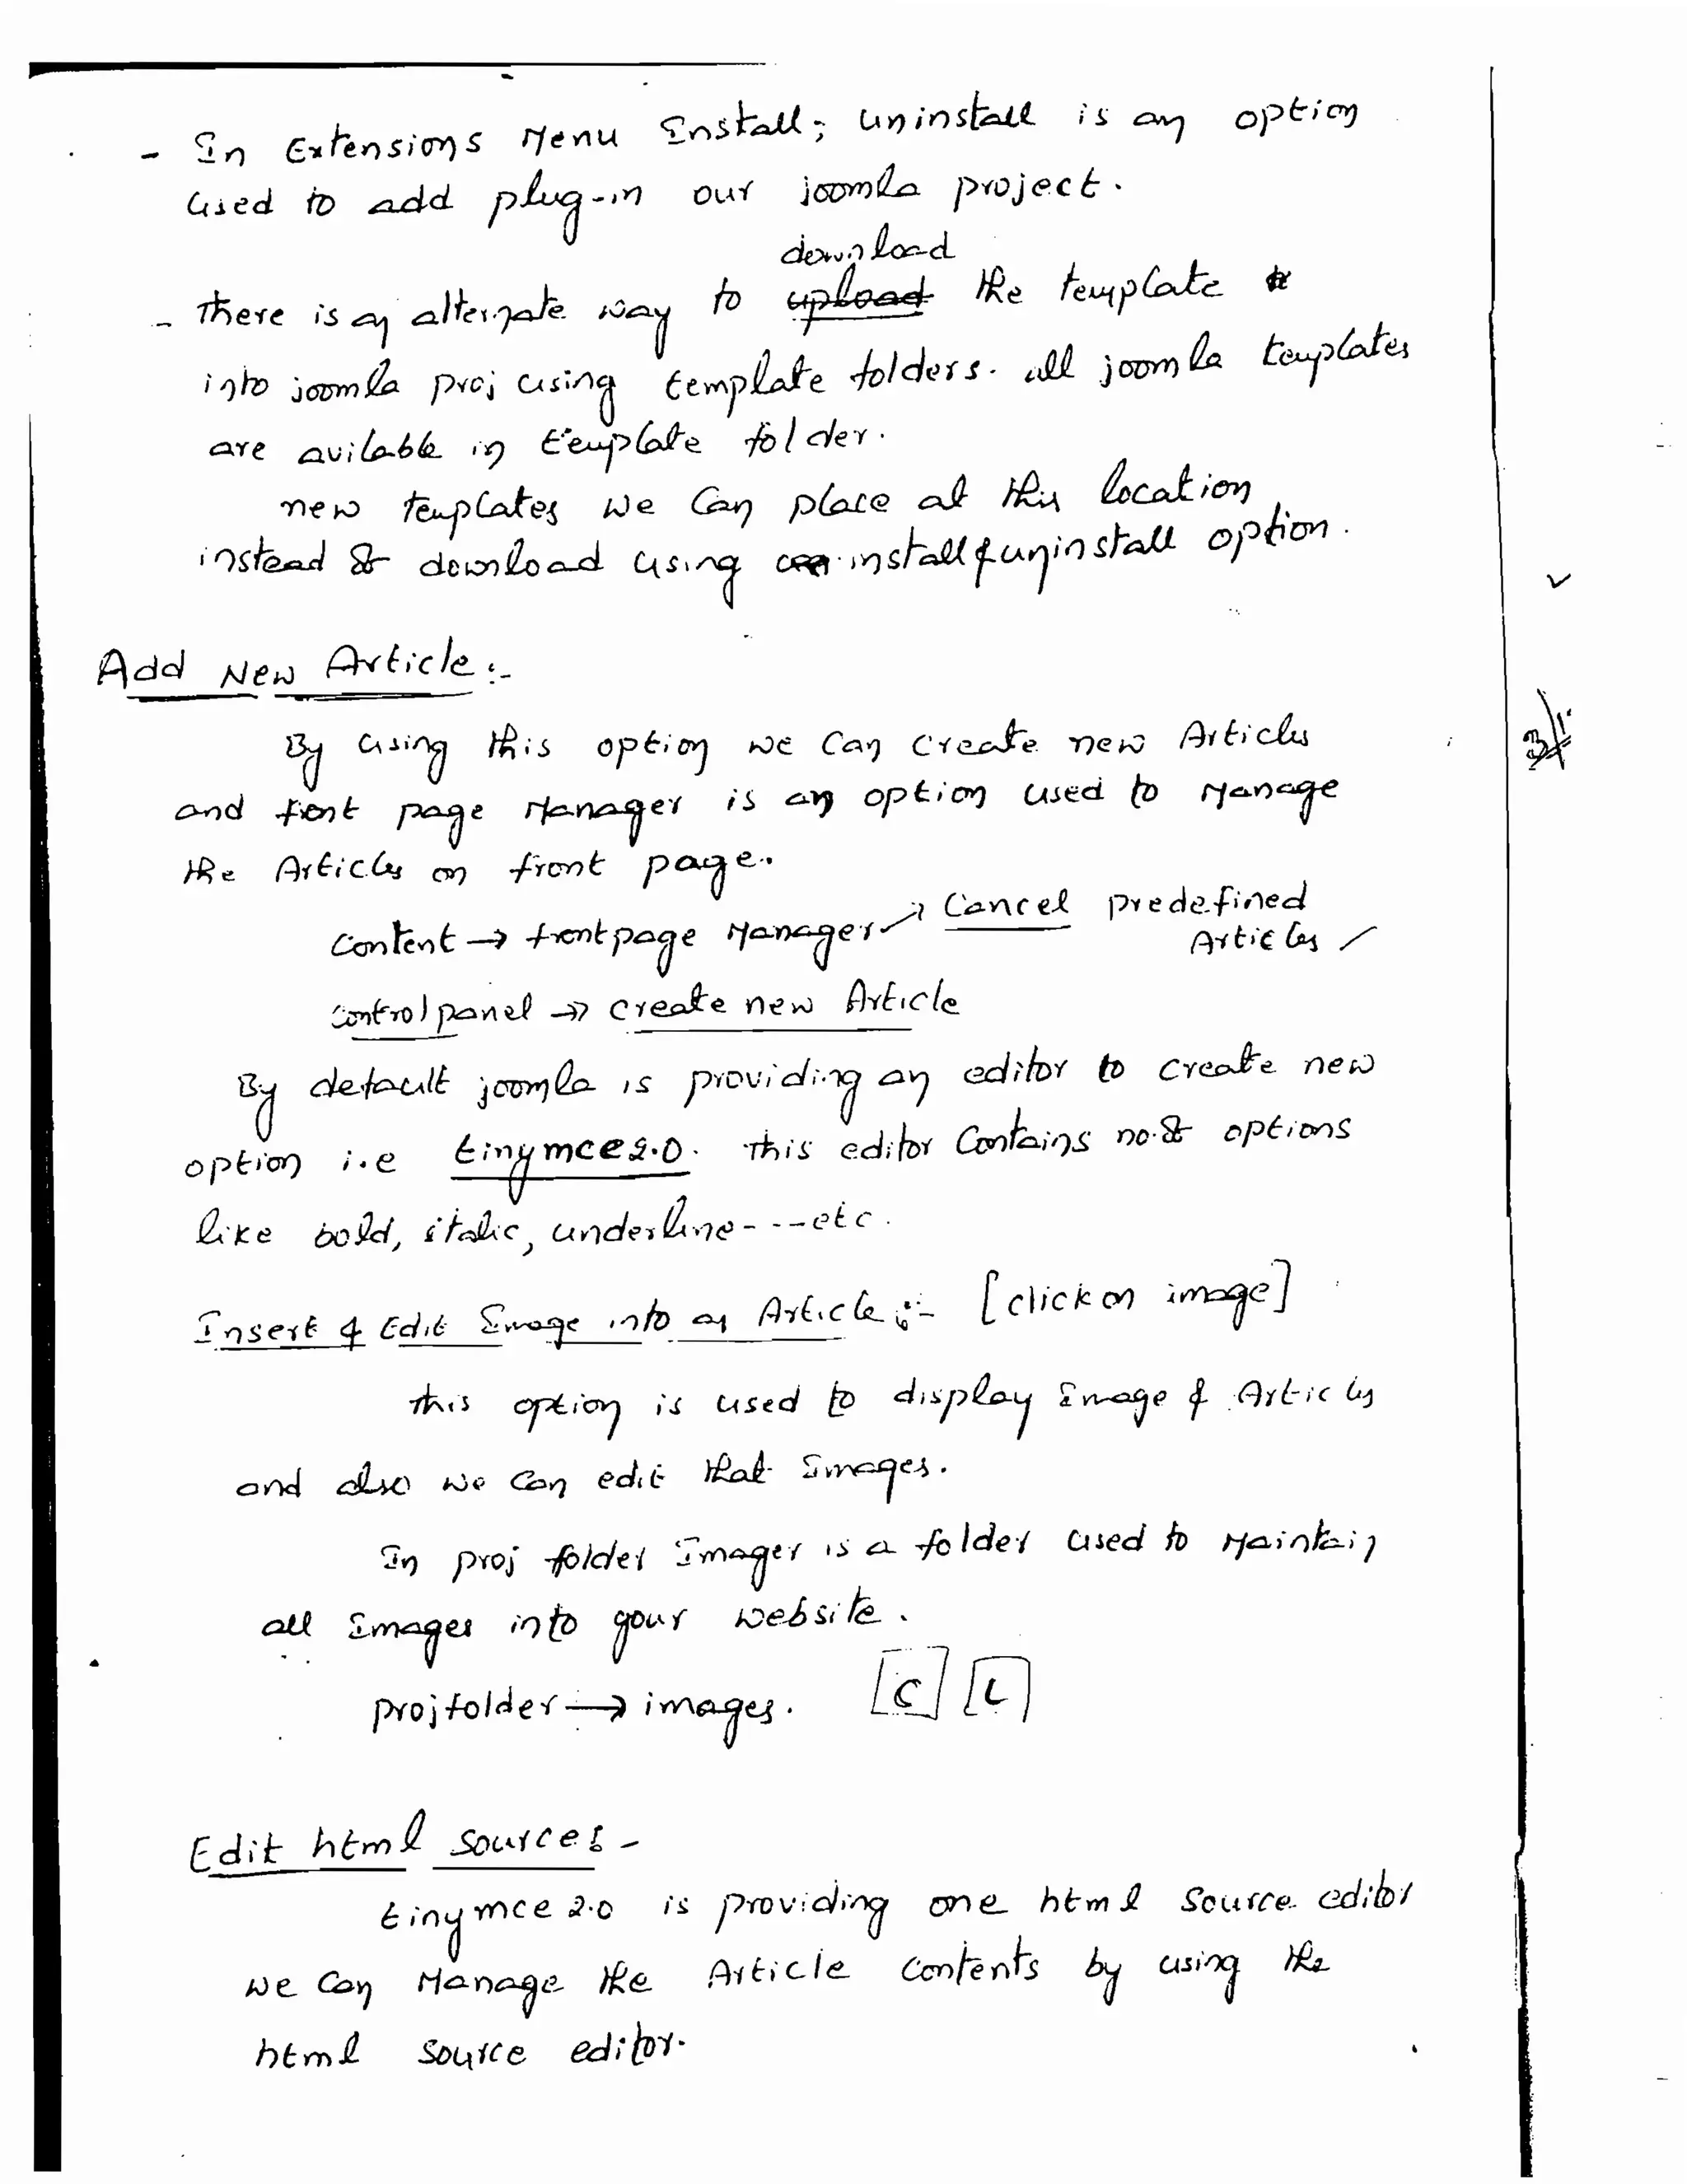 - In Extensions Menu Install; uninstall is an option
used to add plug-in our joomla project.
download
- There is an alternate way to upload the template
into joomla proj using template folders. all joomla templates
are avilable in template folder.
new templates we can place at this location
instead of download using install & uninstall option.
Add New Article :-
By using this option we can create new Articles
and front page Manager is an option used to Manage
the Articles on front page.
Content → frontpage Manager → Cancel predefined
Articles
control panel → create new Article
By default joomla is providing an editor to create new
option i.e tinymce 2.0. This editor Contains no.of options
like bold, italic, underline - - - etc.
Insert & Edit Image into an Article :- [click on image]
This option is used to display Image & Articles
and also we can edit that Images.
In proj folder Images is a folder used to Maintain
all Images into your website.
projfolder → images. C L
Edit html source :-
tinymce 2.0 is providing one html source editor
we can Manage the Article contents by using the
html source editor.